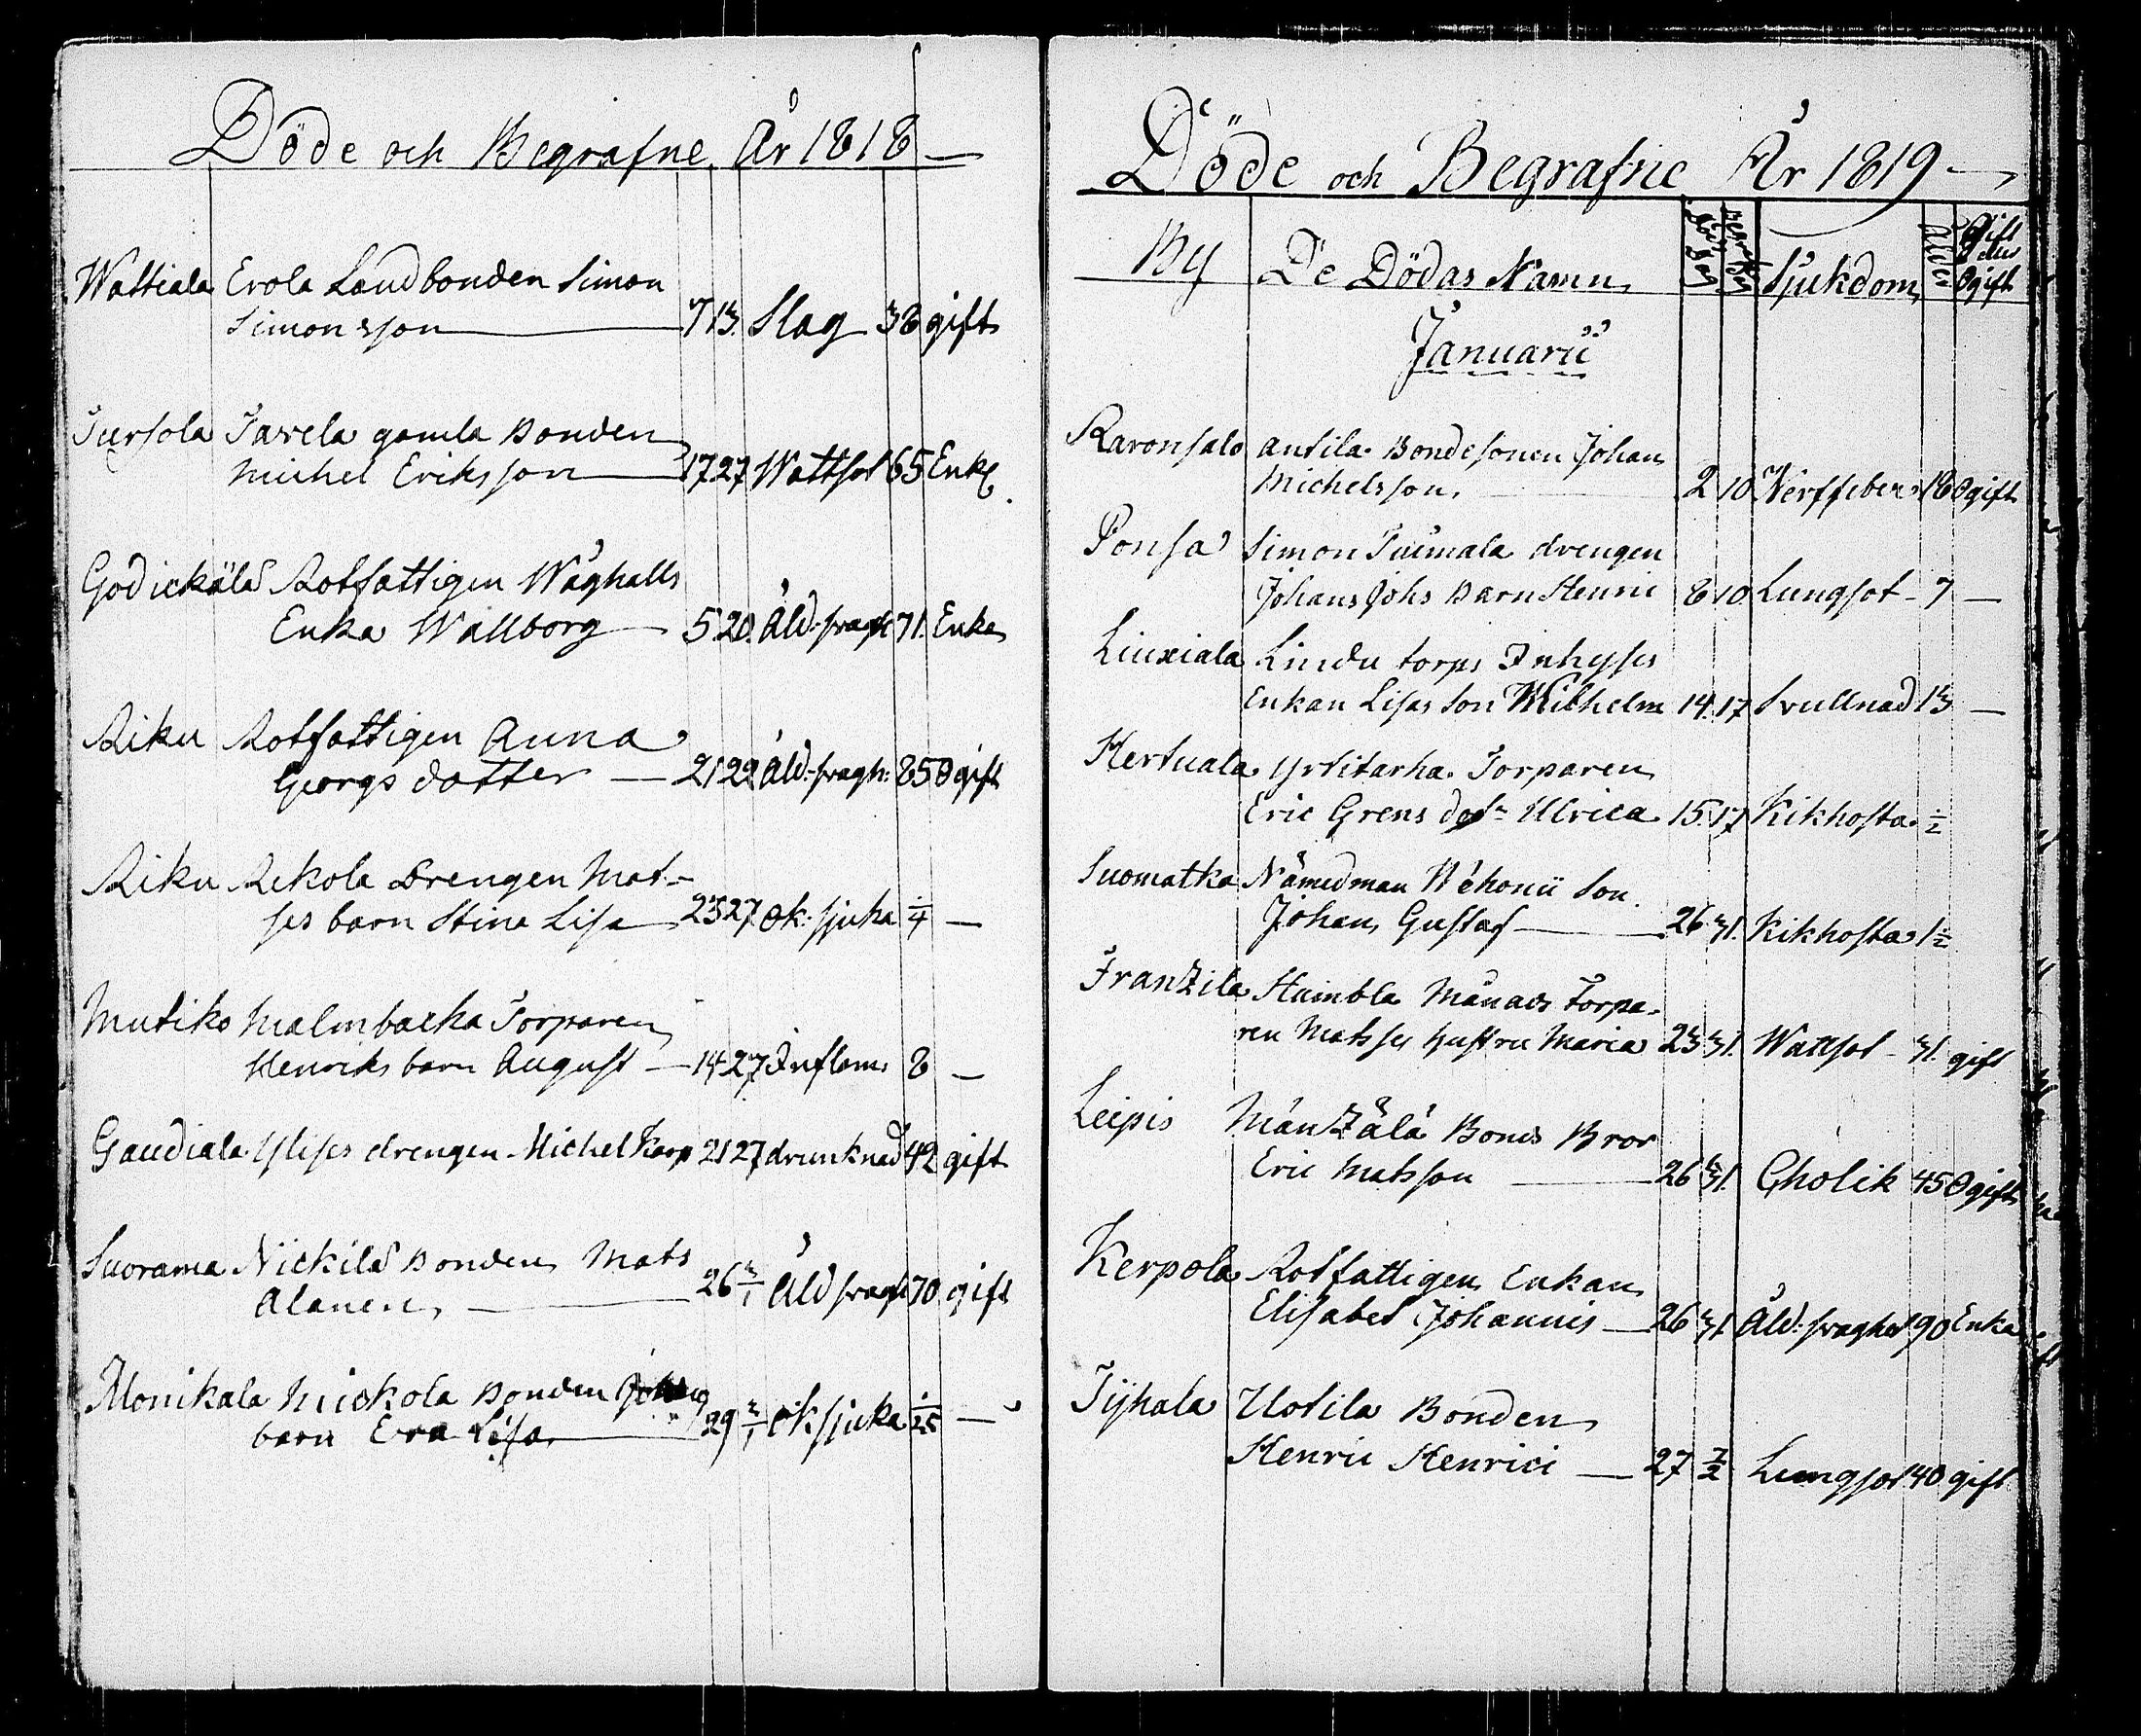 Döde och Begrafne År 1818
Wattiala Erola Landbonden Simon
Simonsson 7 13. Slag 38 gift
Tursola Tavela gamla Bonden
Michel Eriksson 17 27 Wattsot 65 Enkl.
Godickälä Rotfattigen Wåghalls
Enka Wallborg 5 20. Åld: svagh 71. Enka
Riku Rotfattigen Anna
Georgs dotter 21 22 Åld: svagh: 85 Ogift
Riku Rekola Drengen Mat-
ses barn Stina Lisa 23 27 Ok: sjuka 1/4 —
Mutiko Malmbacka Torparen
Henriks barn August 14 27 Inflam 8 —
Gaudiala Ylises drengen Michel Karp 21 27 drunknad 42 gift
Suorama Nickilä Bonden Mats
Alanen 26 3/1 Åld svagh 70 gift
Monikala Mickola Bonden Johans
barn Eva Lisa 29 3/1 Ok sjuka 1/25 —
Döde och Begrafne År 1819
By De Dödas Namn Död dag Begrafn. dag Sjukdom Ålder Gift eller Ogift
Januarii
Ravonsalo Antila Bondesonen Johan
Michelsson 2 10 Nerffeber 18 Ogift
Ponsa Simon Tuimala drengen
Johans Johs Barn Henric 8 10 Lungsot 7 —
Liuxiala Lindu torps Inhyses
Enkan Lisas Son Wilhelm 14. 17 Svullnad 13 —
Hertuala Yrtitarha Torparen
Eric Grens dotr Ulrica 15. 17 Kikhosta 1/2
Suomatka Nämdman Wehonii Son
Johan Gustaf 26 31. Kikhosta 1 1/2
Franzila Humbla Månads Torpa-
ren Matses hustru Maria 23 31. Wattsot 31. gift
Leipis Mänzälä Bonds Bror
Eric Matsson 26 31. Cholik 45 Ogift
Kerpola Rotfattigen Enkan
Elisabet Johannis 26 31 Åld: svaghet 90 Enka
Tyhala Uotila Bonden
Henric Henrici 27 7/2 Lungsot 40 gift